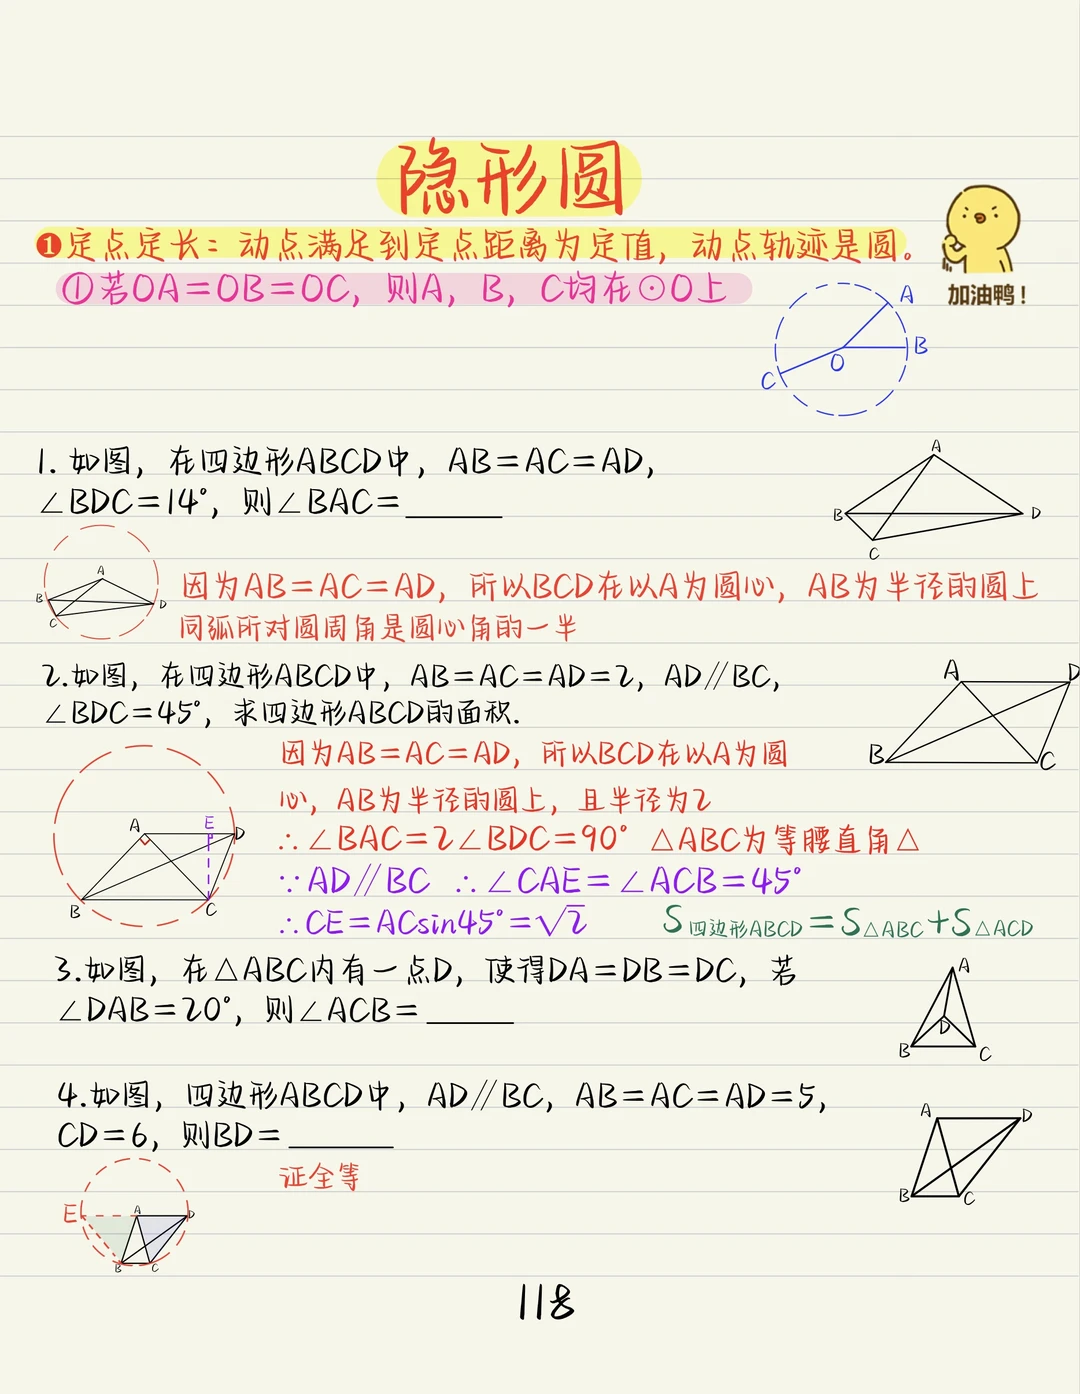 隐形圆
❶定点定长：动点满足到定点距离为定值，动点轨迹是圆。
①若OA=OB=OC，则A，B，C均在⊙O上
加油鸭！
A
B
O
C
1. 如图，在四边形ABCD中，AB=AC=AD，
∠BDC=14°，则∠BAC=______
A
B
D
C
A
B
D
C
因为AB=AC=AD，所以BCD在以A为圆心，AB为半径的圆上
同弧所对圆周角是圆心角的一半
2.如图，在四边形ABCD中，AB=AC=AD=2，AD∥BC，
∠BDC=45°，求四边形ABCD的面积.
A
D
B
C
因为AB=AC=AD，所以BCD在以A为圆
心，AB为半径的圆上，且半径为2
∴∠BAC=2∠BDC=90° △ABC为等腰直角△
∵AD∥BC ∴∠CAE=∠ACB=45°
∴CE=ACsin45°=√2 S四边形ABCD=S△ABC+S△ACD
A
E
D
B
C
3.如图，在△ABC内有一点D，使得DA=DB=DC，若
∠DAB=20°，则∠ACB=______
A
D
B
C
4.如图，四边形ABCD中，AD∥BC，AB=AC=AD=5，
CD=6，则BD=______
A
D
B
C
证全等
E
A
D
B
C
118